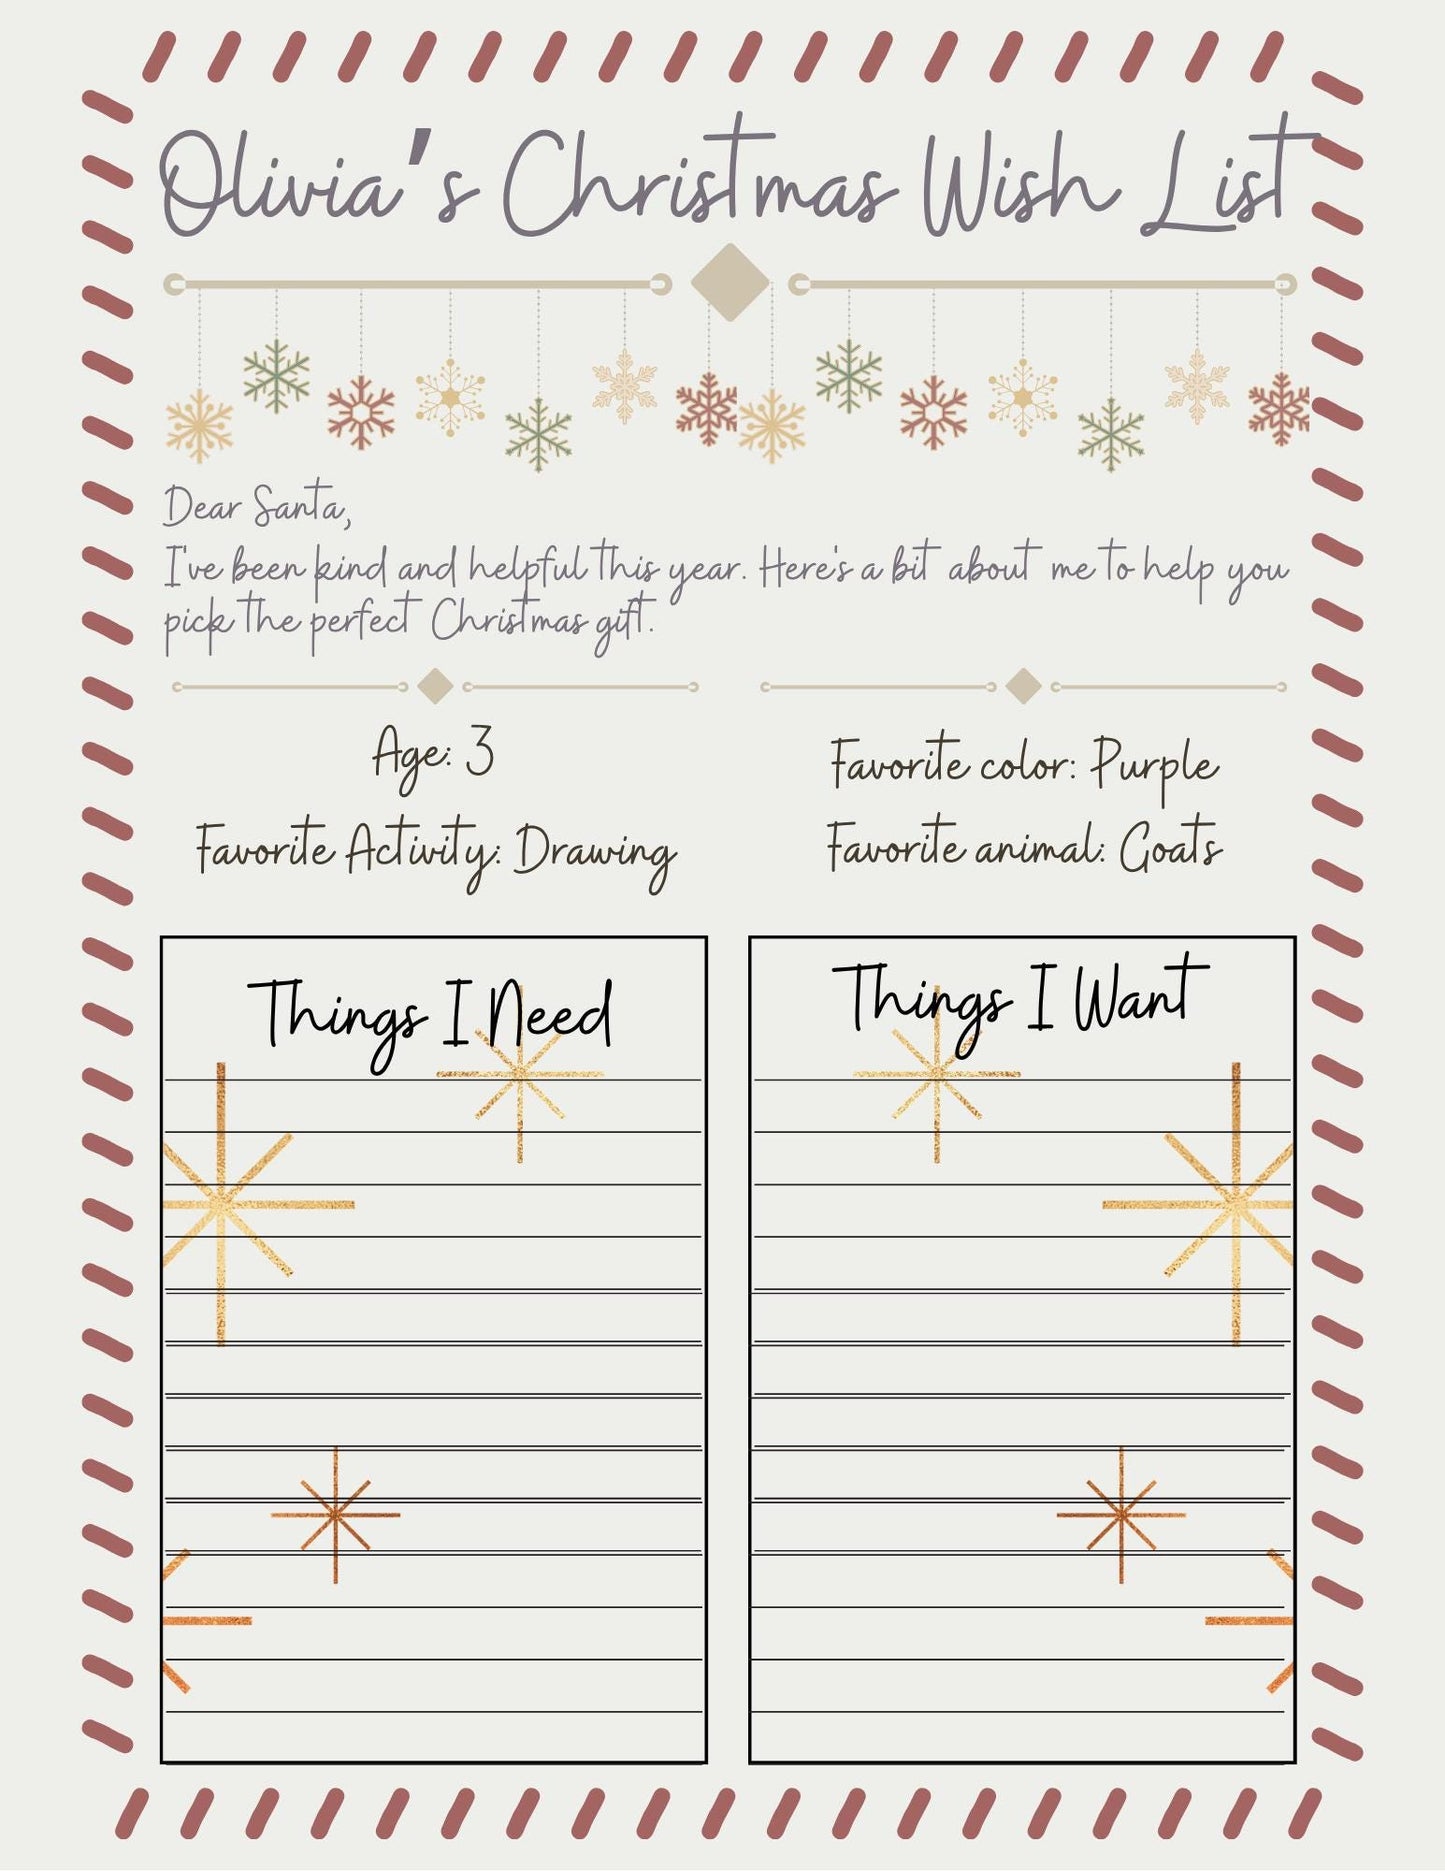 Olivia's Christmas Wish List
Dear Santa,
I've been kind and helpful this year. Here's a bit about me to help you
pick the perfect Christmas gift.
Age: 3
Favorite Activity: Drawing
Favorite color: Purple
Favorite animal: Goats
Things I Need
Things I Want